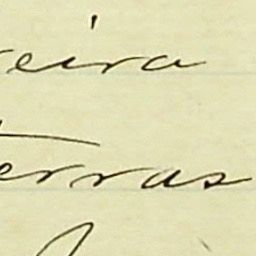 eira
erras